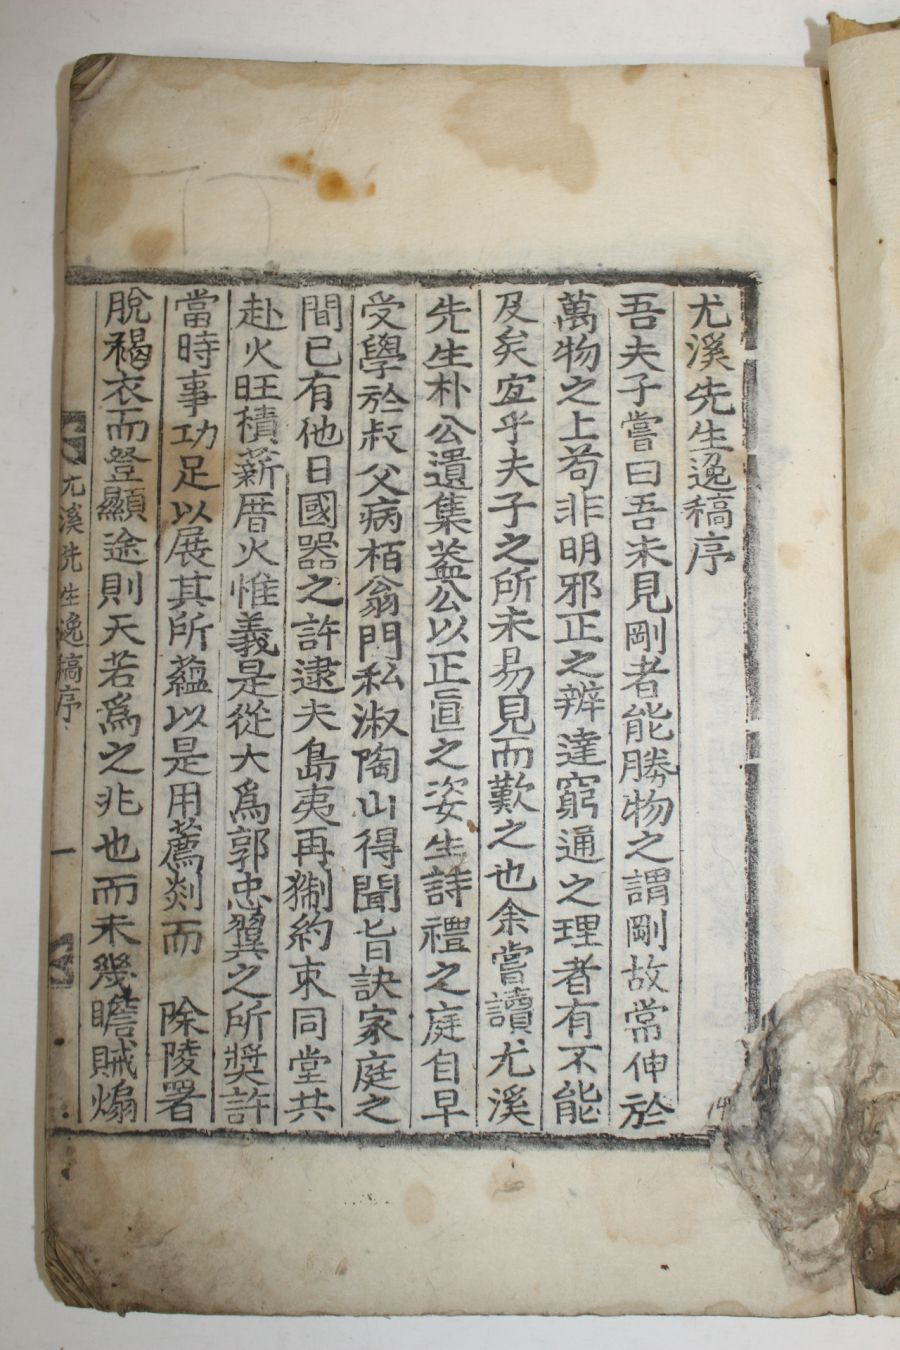 尤溪先生逸稿序
吾夫子嘗曰吾未見剛者能勝物之謂剛故常伸於
萬物之上苟非明邪正之辨達窮通之理者有不能
及矣宜乎夫子之所未易見而歎之也余嘗讀尤溪
先生朴公遺集盖公以正直之姿生詩禮之庭自早
受學於叔父病栢翁門私淑陶山得聞旨訣家庭之
間已有他日國器之許逮夫島夷再猘約束同堂共
赴火旺積薪厝火惟義是從大爲郭忠翼之所奬許
當時事功足以展其所蘊以是用薦剡而 除陵署
脫褐衣而登顯途則天若爲之兆也而未幾瞻賊煽
尤溪先生逸稿序
一